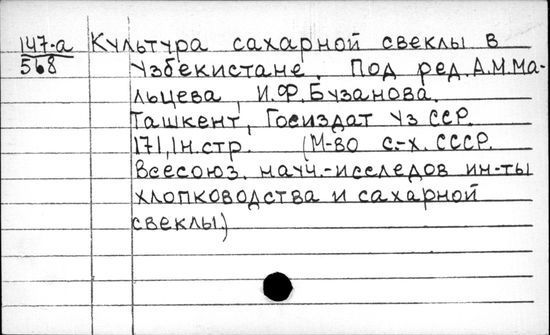 147-а Культура сахарной свеклы в
568 Узбекистане. Под ред. А.М.Ма-
льцева, И.Ф.Бузанова.
Ташкент, Госиздат Уз ССР.
171,1н.стр. (М-во с.-х. СССР.
Всесоюз. науч.-исследов ин-ты
хлопководства и сахарной
свеклы.)